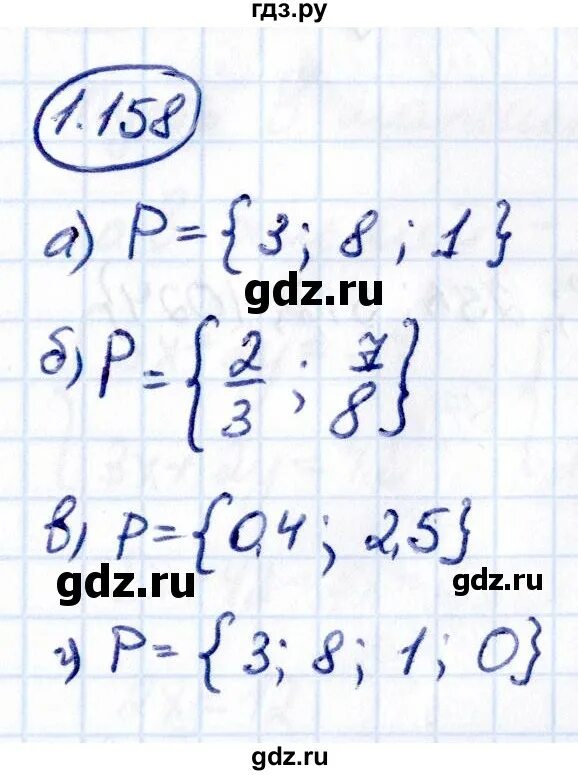 гдз.ру
1.158
а) P = {3; 8; 1}
gdz.ru
б) P = {2/3; 7/8}
в) P = {0,4; 2,5}
gdz.ru gdz.ru
г) P = {3; 8; 1; 0}
gdz.ru